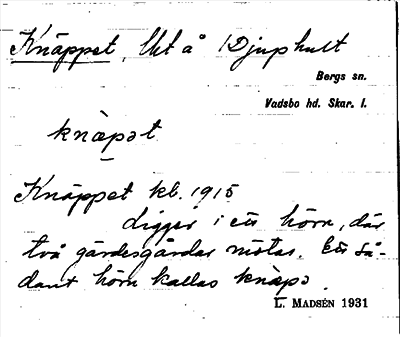 Knäppet, Uet å Djuphult
Bergs sn.
Vadsbo hd. Skar. l.
knæ̀pət
Knäppet kl. 1915
ligger i ett hörn, där
två gärdesgårdar mötas. Ett så-
dant hörn kallas knäpə.
L. MADSÉN 1931